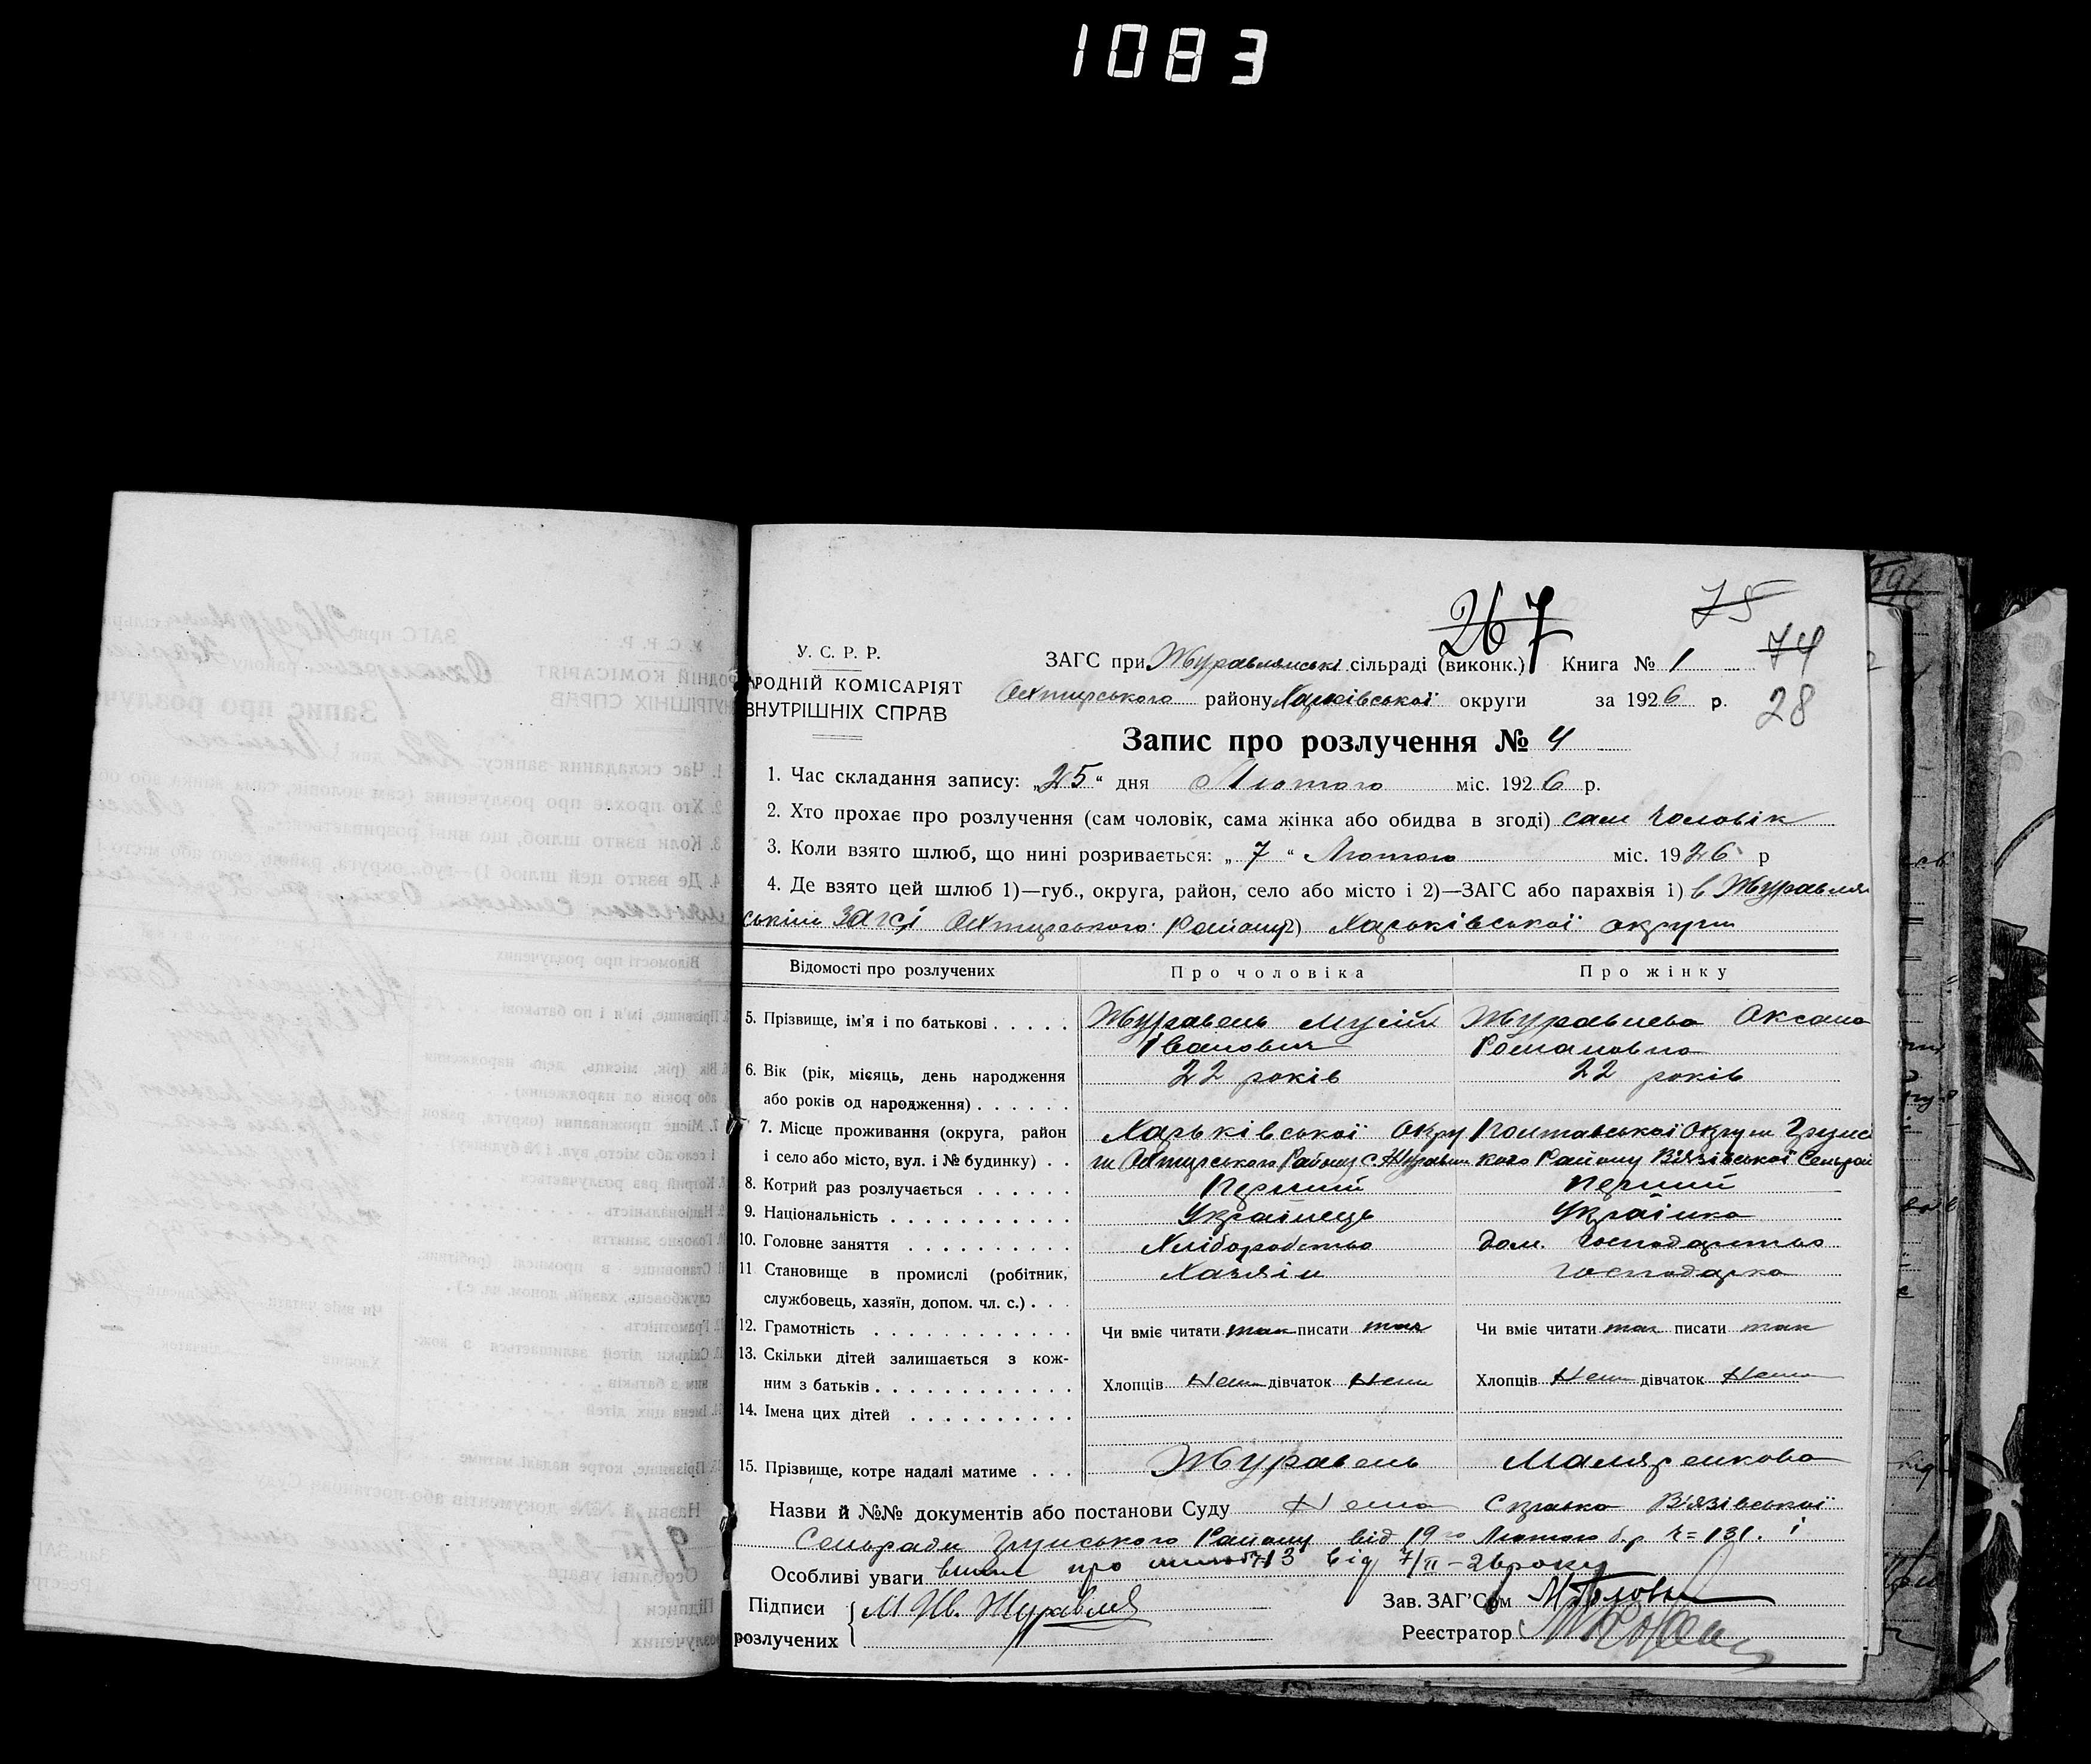 1083
267
75
74
28
У. С. Р. Р.
НАРОДНІЙ КОМІСАРІЯТ
ВНУТРІШНІХ СПРАВ
ЗАГС при Журавлянські сільраді (виконк.) Книга № 1
Охтирського району Харківської округи за 1926 р.
Запис про розлучення № 4
1. Час складання запису: „25“ дня Лютого міс. 1926 р.
2. Хто прохає про розлучення (сам чоловік, сама жінка або обидва в згоді) сам чоловік
3. Коли взято шлюб, що нині розривається: „7“ Лютого міс. 1926 р
4. Де взято цей шлюб 1)—губ., округа, район, село або місто і 2)—ЗАГС або парахвія 1) в Журавлян
ськім Загсі Охтирського Району 2) Харьківської округи
Відомості про розлучених Про чоловіка Про жінку
5. Прізвище, ім'я і по батькові Журавель Мусій Журавлева Оксана
Іванович Романовна
6. Вік (рік, місяць, день народження 22 років 22 років
або років од народження)
7. Місце проживання (округа, район Харьківської Окру Полтавської Округи Грунс
і село або місто, вул. і № будинку) ги Охтирського Району с. Журавл кого Району Вʼязівської Сельрой
8. Котрий раз розлучається Перший перший
9. Національність Українець Українка
10. Головне заняття Хліборобство Дом. Господарство
11 Становище в промислі (робітник, Хазяїн господарка
службовець, хазяїн, допом. чл. с.)
12. Грамотність Чи вміє читати так писати так Чи вміє читати так писати так
13. Скільки дітей залишається з кож-
ним з батьків Хлопців Нема дівчаток Нема Хлопців Нема дівчаток Нема
14. Імена цих дітей
15. Прізвище, котре надалі матиме Журавель Маляренкова
Назви й №№ документів або постанови Суду Нема Справка Вʼязівської
Сельради Грунського Району від 19го Лютого б.р. Ч= 131. і
Особливі уваги про шлюб 13 від 7/II – 26 року
Підписи М Ив. Журавлев Зав. ЗАГ'Сом
розлучених Реєстратор